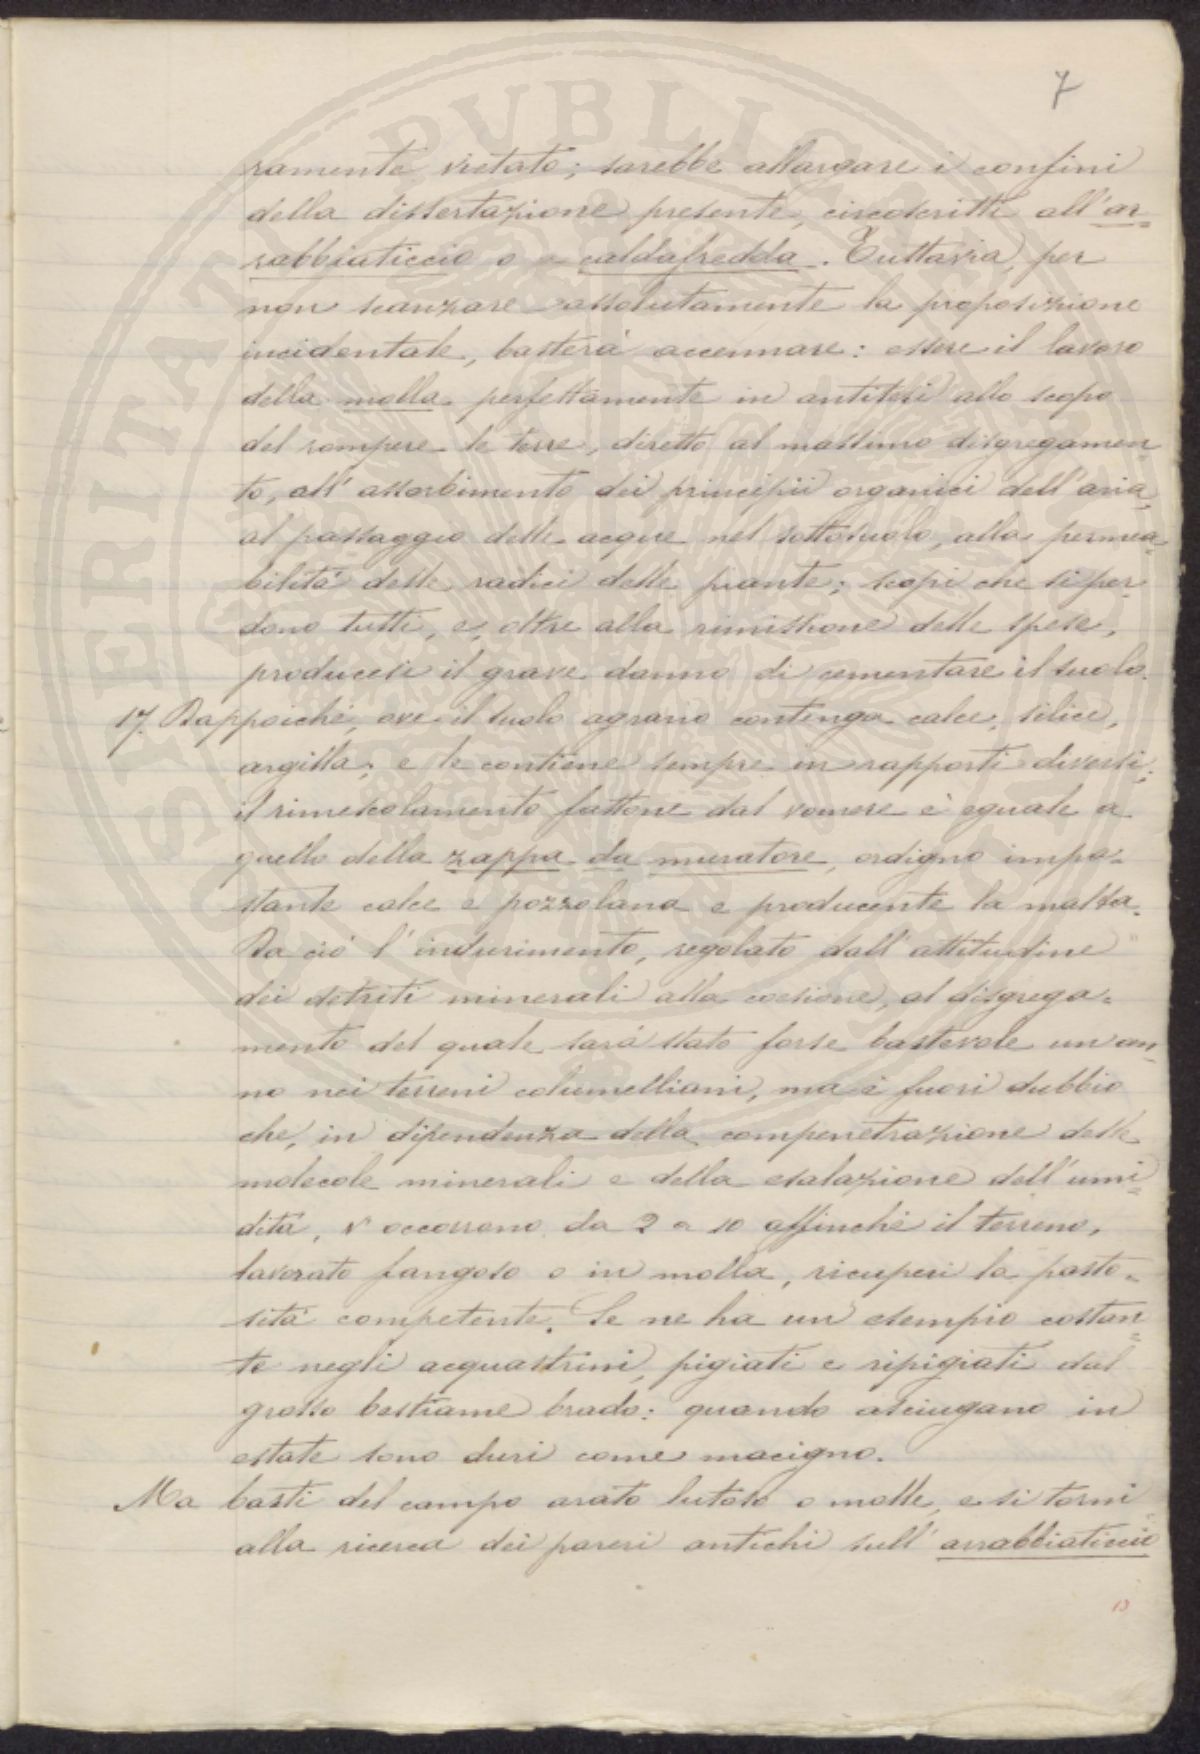 7
ramente vietato; sarebbe allargare i confini
della dissertazione presente, circoscritti all'ar=
rabbiaticcio o a caldafredda. Tuttavia, per
non scanzare assolutamente la proposizione
incidentale, basterà accennare: essere il lavoro
della molla perfettamente in antitesi allo scopo
del rompere le terre, diretto al massimo disgregamen=
to, all'assorbimento dei principii organici dell'aria,
al passaggio delle acque nel sottosuolo, alla permea=
bilità delle radici delle piante; scopi che si per=
dono tutti, e, oltre alla rimissione delle spese,
producesi il grave danno di cementare il suolo.
17. Dappoiché, ove il suolo agrario contenga calce, silice,
argilla; e le contiene sempre in rapporti diversi;
il rimescolamento fattone dal vomere è eguale a
quello della zappa da muratore, ordigno impa=
stante calce e pozzolana e producente la malta.
Da ciò l'indurimento, regolato dall'attitudine
dei detriti minerali alla coesione, al disgrega=
mento del quale sarà stato forse bastevole un an=
no nei terreni columelliani, ma è fuori dubbio
che, in dipendenza della compenetrazione delle
molecole minerali e della esalazione dell'umi=
dità, v'occorrono da 2 a 10 affinché il terreno,
lavorato fangoso o in molla, ricuperi la pasto=
sità competente. Se ne ha un esempio costan=
te negli acquastrini, pigiati e ripigiati dal
grosso bestiame brado: quando asciugano in
estate sono duri come macigno.
Ma basti del campo arato lutoso o molle, e si torni
alla ricerca dei pareri antichi sull'arrabbiaticcio
13
PROSPERITATI PUBLICAE